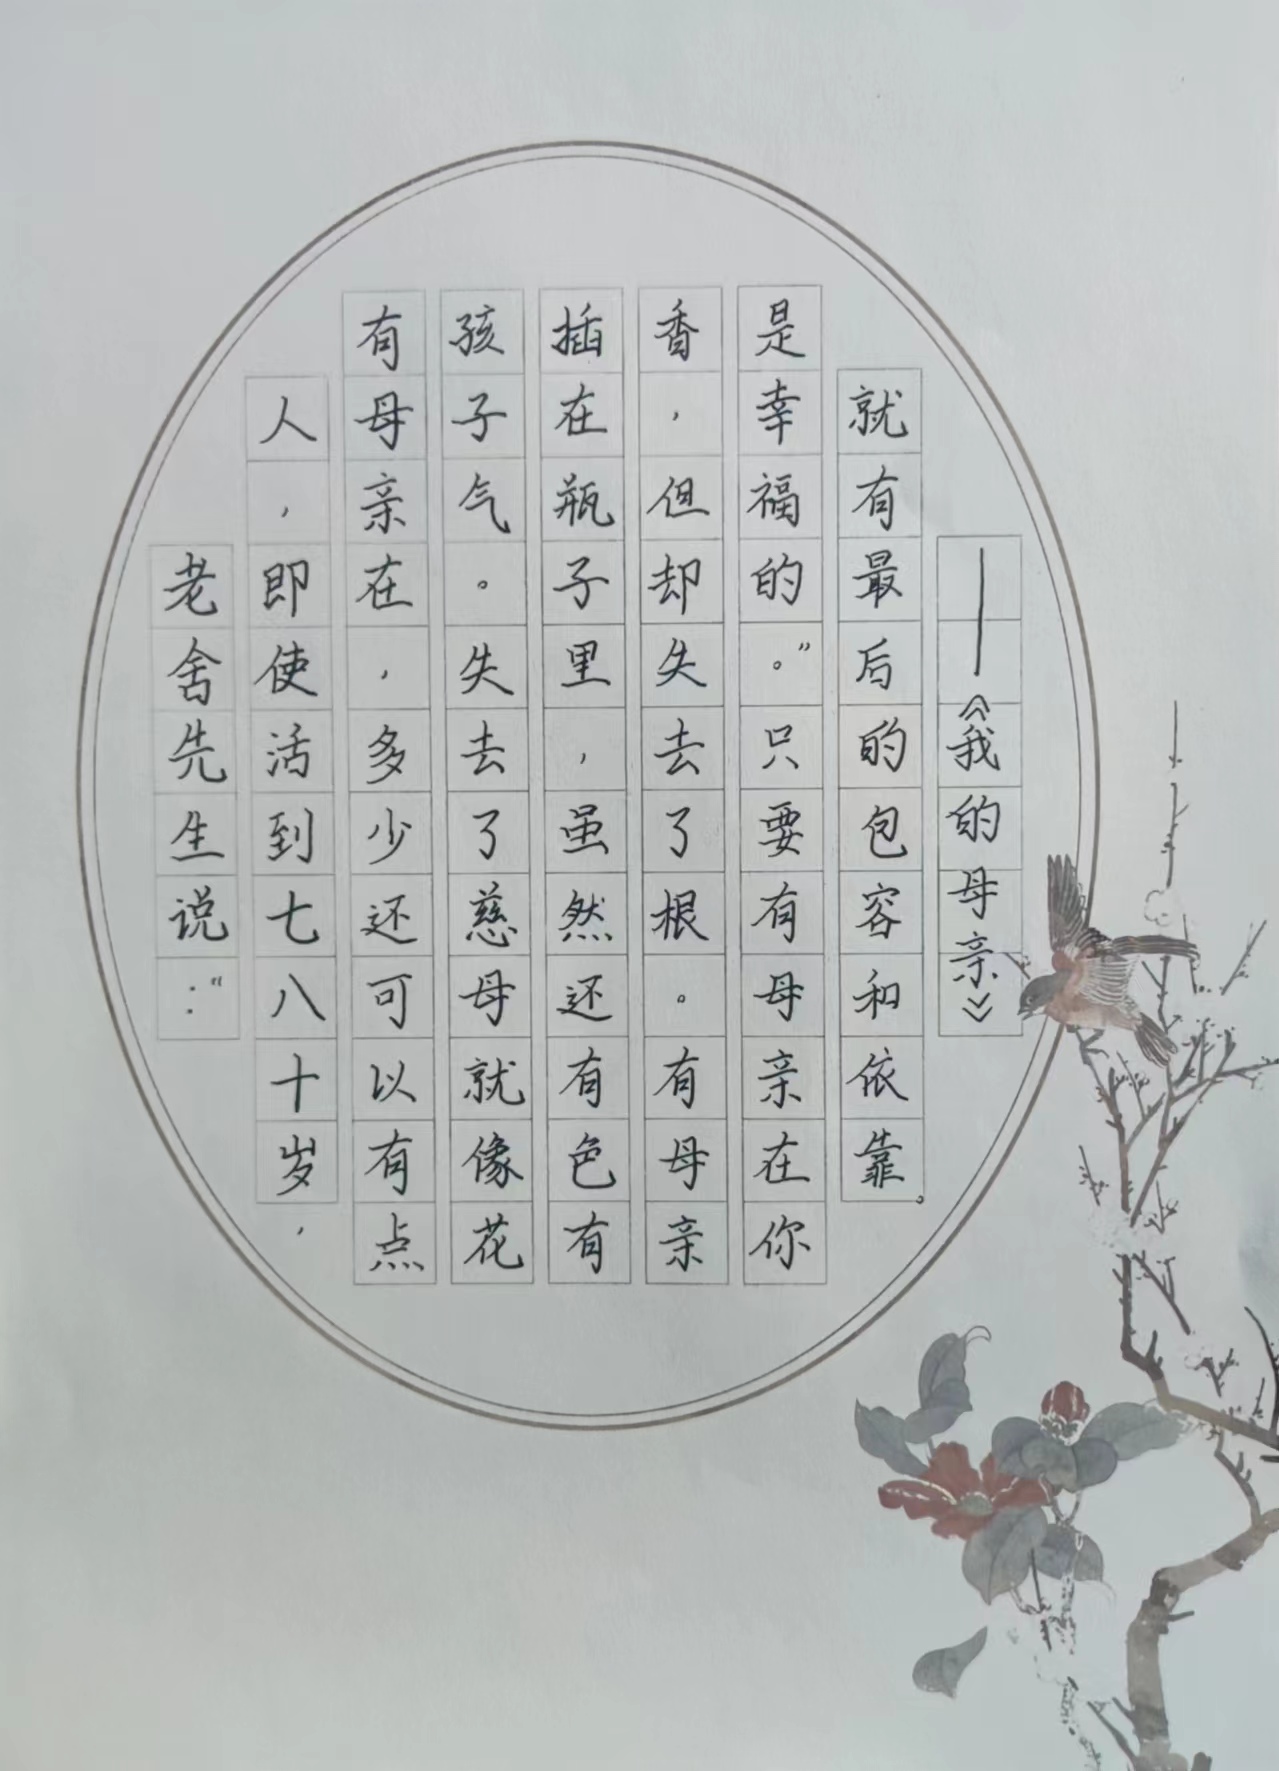 老舍先生说：“
人，即使活到七八十岁，
有母亲在，多少还可以有点
孩子气。失去了慈母就像花
插在瓶子里，虽然还有色有
香，但却失去了根。有母亲
是幸福的。”只要有母亲在你
就有最后的包容和依靠。
——《我的母亲》